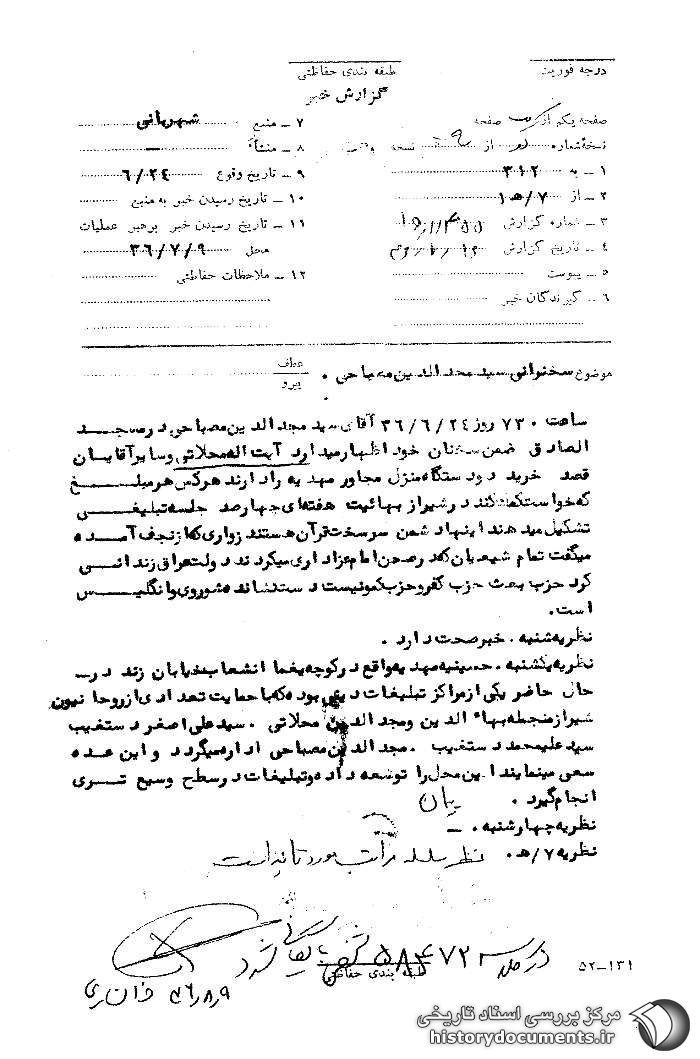 درجه فوریت
طبقه بندی حفاظتی
گزارش خبر
صفحه یکم از یک صفحه
نسخه شماره از نسخه
۱ـ به ۳۱۲
۲ـ از ۷/ه‍ ۱
۳ـ شماره گزارش
۴ـ تاریخ گزارش
۵ـ پیوست
۶ـ گیرندگان خبر
۷ـ منبع شهربانی
۸ـ منشأ ـ
۹ـ تاریخ وقوع ۶/۲۴
۱۰ـ تاریخ رسیدن خبر به منبع
۱۱ـ تاریخ رسیدن خبر برهبر عملیات
محل ۳۶/۷/۹
۱۲ـ ملاحظات حفاظتی
موضوع سخنرانی سید مجدالدین مصباحی .
عطف
پیرو
ساعت ۷۳۰ روز ۳۶/۶/۲۴ آقای سید مجد الدین مصباحی در مسجد
الصادق ضمن سخنان خود اظهار میدارد آیت اله محلاتی و سایر آقایان
قصد خرید دو دستگاه منزل مجاور مهدیه را دارند هر کس هر مبلغ
که خواست کمک کند در شیراز بهائیت هفته ای چهارصد جلسه تبلیغی
تشکیل میدهند اینها دشمن سرسخت قرآن هستند زواری که از نجف آمده
میگفت تمام شیعیان که در صحن امام عزاداری میکردند دولت عراق زندانی
کرد حزب بعث حزب کفر و حزب کمونیست دست نشانده شوروی و انگلیس
است.
نظریه شنبه . خبر صحت دارد .
نظریه یکشنبه . حسینیه مهدیه واقع در کوچه یغما انشعاب خیابان زند در
حال حاضر یکی از مراکز تبلیغات دینی بوده که با حمایت تعدادی از روحانیون
شیراز منجمله بهاء الدین و مجد الدین محلاتی . سید علی اصغر دستغیب
سید علیمحمد دستغیب . مجد الدین مصباحی اداره میگردد و این عده
سعی مینمایند این محل را توسعه داده و تبلیغات در سطح وسیع تری
انجام گیرد .
نظریه چهارشنبه . ـ
نظریه ۷/ه‍ . نظر سلسله مراتب مورد تائید است
در کلاسه ۵۸۴۷۲ بایگانی شود
۳۶/۸/۹
طبقه بندی حفاظتی
۵۲ـ۱۳۱
مرکز بررسی اسناد تاریخی
historydocuments.ir